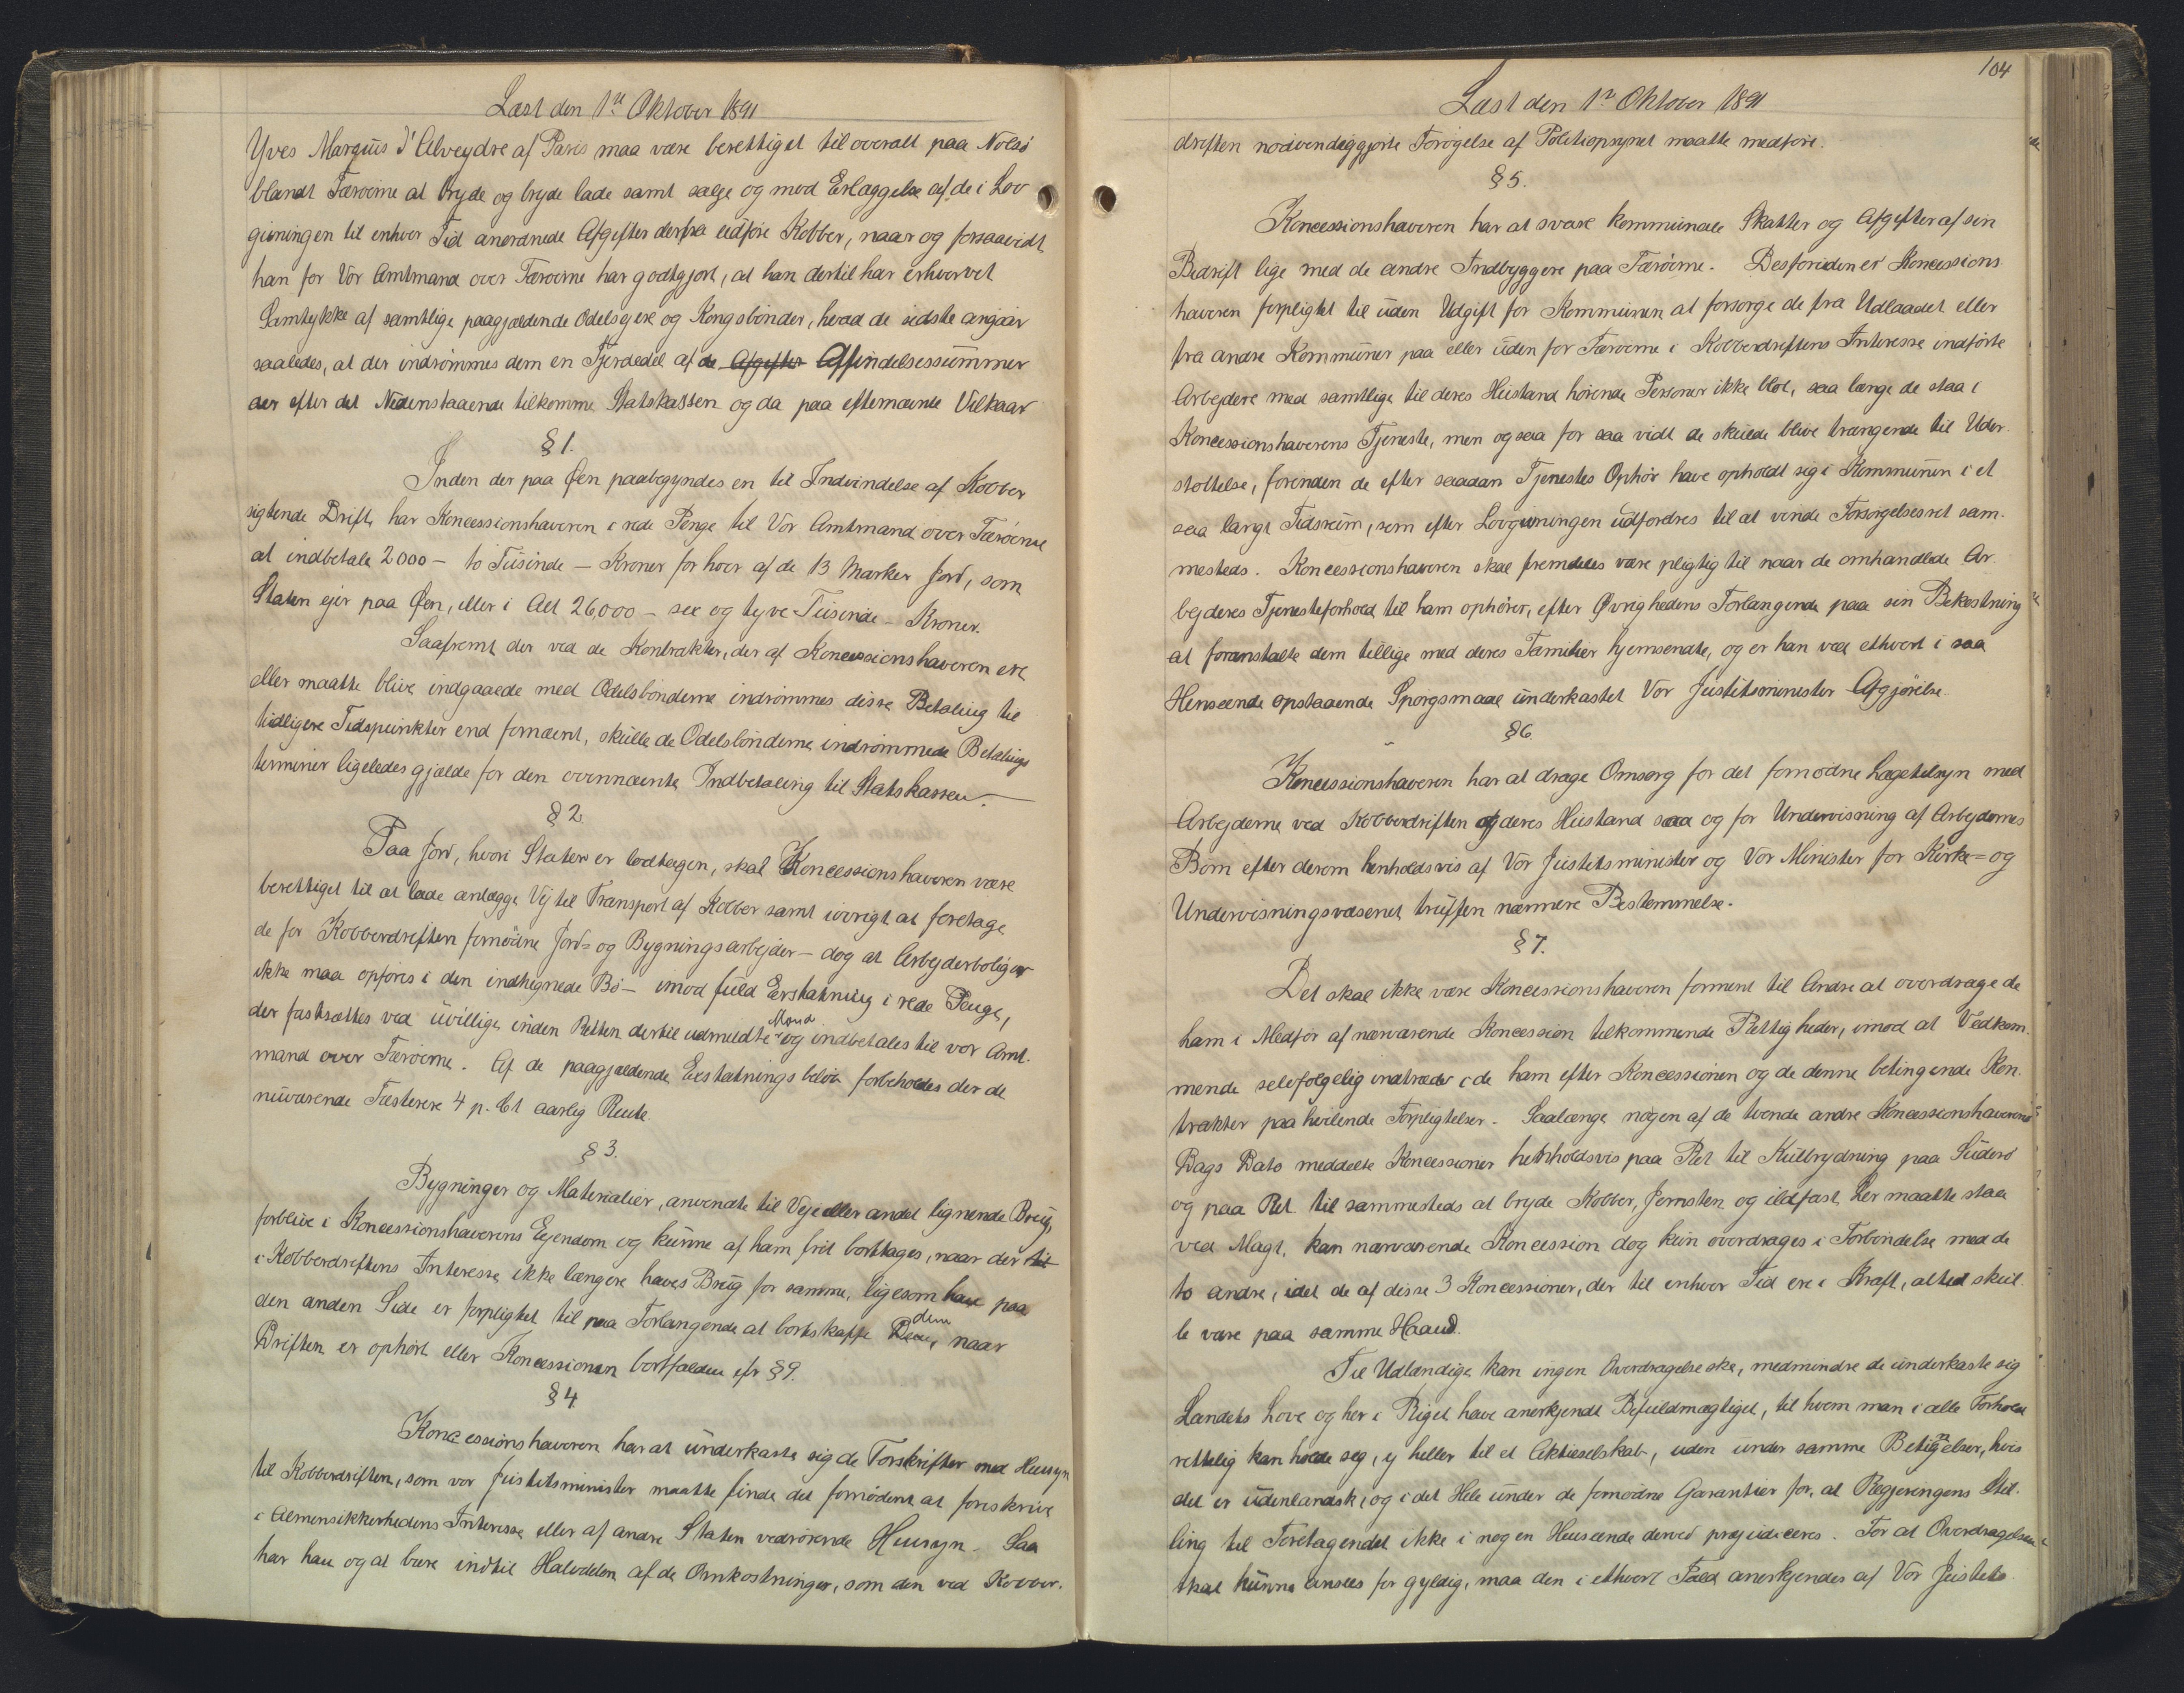 Læst den 1ste Oktober 1891.
Yves Marquis d'Alveydre af Paris maa være berettiget til overalt paa Nolsö
blandt Færöerne at bryde og bryde lade samt sælge og mod Erlæggelse af de i Lov
givningen til enhver Tid anordnede Afgifter derfra udføre Kobber, naar og forsaavidt
han for Vor Amtmand over Færöerne har godtgjort, at han dertil har erhvervet
Samtykke af samtlige paagjældende Odelsejere og Kongsbönder, hvad de sidste angaar
saaledes, at der indrömmes dem en Fjerdedel af de Afgifter Affindelsessummer
der efter det Nedenstaaende tilkomme Statskassen og da paa efternævnte Vilkaar
§ 1.
Inden der paa Øen paabegyndes en til Indvindelse af Kobber
sigtende Drift, har Koncessionshaveren i rede Penge til Vor Amtmand over Færöerne
at indbetale 2000 - to Tusinde - Kroner for hver af de 13 Marker Jord, som
Staten ejer paa Øen, eller i Alt 26,000 - sex og tyve Tusinde - Kroner.
Saafremt der ved de Kontrakter, der af Koncessionshaveren ere
eller maatte blive indgaaede med Odelsbönderne indrömmes disse Betaling til
tidligere Tidspunkter end fornævnt, skulle de Odelsbönderne indrömmede Betalings
terminer ligeledes gjælde for den ovennævnte Indbetaling til Statskassen.
§ 2.
Paa Jord, hvori Staten er lodtagen, skal Koncessionshaveren være
berettiget til at lade anlægge Vej til Transport af Kobber samt iövrigt at foretage
de for Kobberdriften fornödne Jord= og Bygningsarbejder - dog at Arbejderboliger
ikke maa opföres i den indhegnede Bö - imod fuld Erstatning i rede Penge,
der fastsættes ved uvillige inden Retten dertil udmeldte Mænd og indbetales til vor Amt-
mand over Færöerne. Af de paagjældende Erstatnings beløb forbeholdes der de
nuværende Fæstere 4 p. Ct aarlig Rente.
§ 3.
Bygninger og Materialier, anvendte til Veje eller andet lignende Brug,
forblive i Koncessionshaverens Ejendom og kunne af ham frit borttages, naar der til
i Kobberdriftens Interesse ikke længere haves Brug for samme, ligesom han paa
den anden Side er forpligtet til paa Forlangende at bortskaffe Dem, dem naar
Driften er ophört eller Koncessionen bortfalden cfr § 9.
§ 4
Koncessionshaveren har at underkaste sig de Forskrifter med Hensyn
til Kobberdriften, som vor Justitsminister maatte finde det fornödent at foreskrive
i Almensikkerhedens Interesse eller af andre Staten vedrörende Hensyn. Saa
har han og at bære indtil Halvdelen af de Omkostninger, som den ved Kobber.
104
Læst den 1ste Oktober 1891
driften nödvendiggjorte Forögelse af Politiopsynet maatte medföre.
§ 5.
Koncessionshaveren har at svare kommunale Skatter og Afgifter af sin
Bedrift lige med de andre Indbyggere paa Færöerne. Desforuden er Koncessions
haveren forpligtet til uden Udgift for Kommunen at forsörge de fra Udlandet eller
fra andre Kommuner paa eller uden for Færöerne i Kobberdriftens Interesse indförte
Arbejdere med samtlige til deres Husstand hörende Personer ikke blot, saa længe de staa i
Koncessionshaverens Tjeneste, men ogsaa for saa vidt de skulde blive trængende til Under-
stöttelse, forinden de efter saadan Tjenestes Ophör have opholdt sig i Kommunen i et
saa langt Tidsrum, som efter Lovgivningen udfordres til at vinde Forsörgelsesret sam-
mesteds. Koncessionshaveren skal fremdeles være pligtig til naar de omhandlede Ar-
bejderes Tjenesteforhold til ham ophörer, efter Øvrighedens Forlangende paa sin Bekostning
at foranstalte dem tillige med deres Familier hjemsendte, og er han ved ethvert i saa
Henseende opstaaende Spörgsmaal underkastet Vor Justitsminister Afgjörelse.
§ 6.
Koncessionshaveren har at drage Omsorg for det fornödne Lægetilsyn med
Arbejderne ved Kobberdriften og deres Husstand saa og for Undervisning af Arbejdernes
Börn efter derom henholdsvis af Vor Justitsminister og Vor Minister for Kirke= og
Undervisningsvæsenet truffen nærmere Bestemmelse.
§ 7.
Det skal ikke være Koncessionshaveren forment til Andre at overdrage de
ham i Medför af nærværende Koncession tilkommende Rettigheder, imod at Vedkom-
mende selvfölgelig indtræder i de ham efter Koncessionen og de denne betingende Kon-
trakter paa hvilende Forpligtelser. Saalænge nogen af de tvende andre Koncessionshaveren
Dags Dato meddelte Koncessioner henholdsvis paa Ret til Kulbrydning paa Suderö
og paa Ret til sammesteds at bryde Kobber, Jernsten og ildfast Ler maatte staa
ved Magt, kan nærværende Koncession dog kun overdrages i Forbindelse med de
to andre, idet de af disse 3 Koncessioner, der til enhver Tid ere i Kraft, altid skul-
le være paa samme Haand.
Til Udlændige kan ingen Overdragelse ske, medmindre de underkaste sig
Landets Love og her i Riget have anerkjendt Befuldmægtiget, til hvem man i alle Forhold
rettelig kan holde sig, ej heller til et Aktieselskab, uden under samme Betingelser, hvis
det er udenlandsk, og i det Hele under de fornödne Garantier for, at Regjeringens Stil-
ling til Foretagendet ikke i nogen Henseende derved præjudiceres. For at Overdragelsen
skal kunne ansees for gyldig, maa den i ethvert Fald anerkjendes af Vor Justits